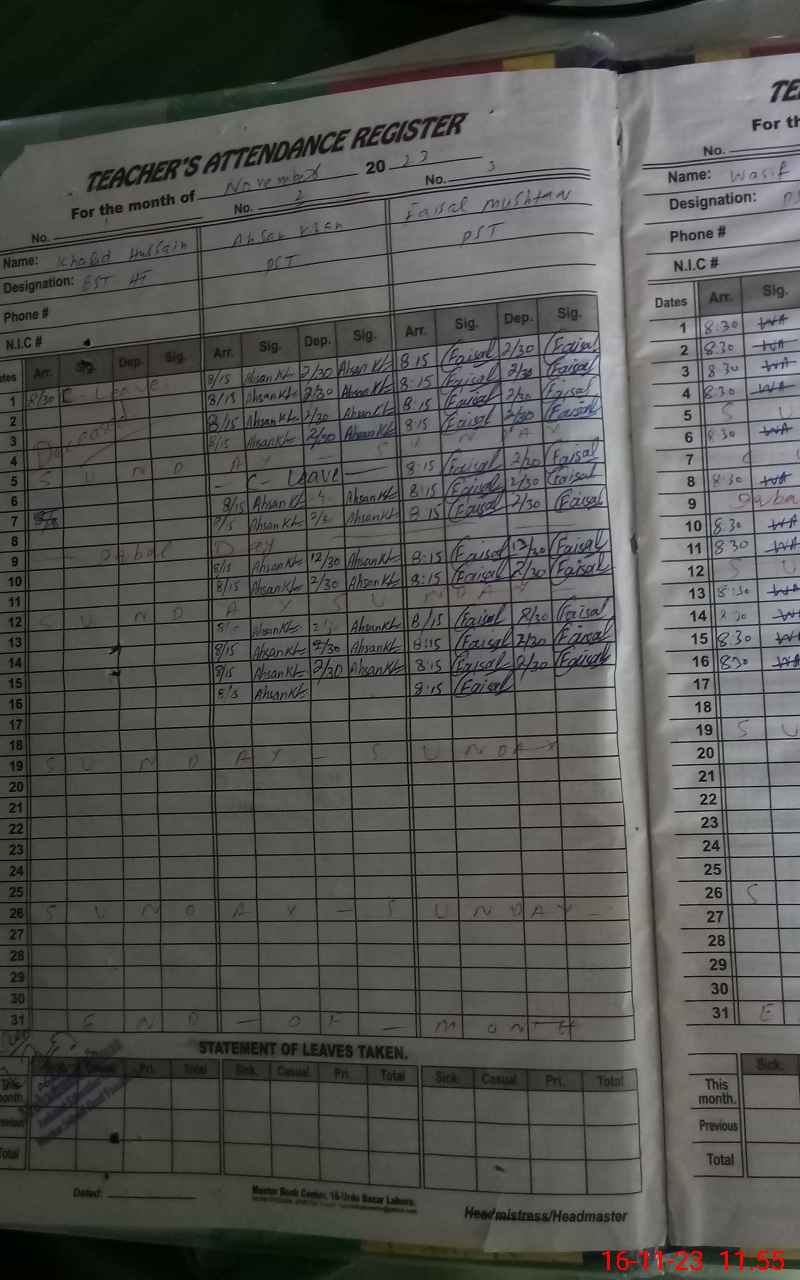 TEACHER'S ATTENDANCE REGISTER
For the month of November 2023
No. 1 No. 2 No. 3
Name: Khalid Hussain Ahsan Khan Faisal Mushtaq
Designation: EST HT PST PST
Phone #
N.I.C #
Dates Arr. Sig. Dep. Sig. Arr. Sig. Dep. Sig. Arr. Sig. Dep. Sig.
1 8/30 C-Leave 8/15 AhsanKh 2/30 AhsanKh 8:15 Faisal 2/30 Faisal
2 8/15 AhsanKh 2/30 AhsanKh 8:15 Faisal 2/30 Faisal
3 8/15 AhsanKh 2/30 AhsanKh 8:15 Faisal 2/30 Faisal
4 8/15 AhsanKh 2/30 AhsanKh 8:15 Faisal 2/30 Faisal
5 S U N D A Y - S U N D A Y
6 - C - Leave - 8:15 Faisal 2/30 Faisal
7 8/15 AhsanKh AhsanKh 8:15 Faisal 2/30 Faisal
8 8/15 AhsanKh 2/30 AhsanKh 8:15 Faisal 2/30 Faisal
9 Iqbal Day
10 8/15 AhsanKh 12/30 AhsanKh 8:15 Faisal 12/30 Faisal
11 8/15 AhsanKh 2/30 AhsanKh 8:15 Faisal 2/30 Faisal
12 S U N D A Y S U N D A Y
13 AhsanKh AhsanKh 8/15 Faisal 2/30 Faisal
14 8/15 AhsanKh 2/30 AhsanKh 8:15 Faisal 2/30 Faisal
15 8/15 AhsanKh 2/30 AhsanKh 8:15 Faisal 2/30 Faisal
16 8/15 AhsanKh 8:15 Faisal
17
18
19 S U N D A Y - S U N D A Y
20
21
22
23
24
25
26 S U N D A Y - S U N D A Y -
27
28
29
30
31 E N D - O F - M O N T H
STATEMENT OF LEAVES TAKEN.
Sick. Casual. Pri. Total Sick. Casual. Pri. Total Sick. Casual. Pri. Total
This month.
Previous
Total
Dated:
Master Book Center, 16-Urdu Bazar Lahore.
Headmistress/Headmaster
TE
For th
No.
Name: Wasif
Designation: PS
Phone #
N.I.C #
Dates Arr. Sig.
1 8:30 WA
2 8:30 WA
3 8:30 WA
4 8:30 WA
5 S U
6 8:30 WA
7 C
8 8:30 WA
9 Iqba
10 8:30 WA
11 8:30 WA
12 S U
13 8:30 WA
14 8:30 WA
15 8:30 WA
16 8:30 WA
17
18
19 S U
20
21
22
23
24
25
26 S
27
28
29
30
31 E
Sick.
This month.
Previous
Total
16-11-23 11:55